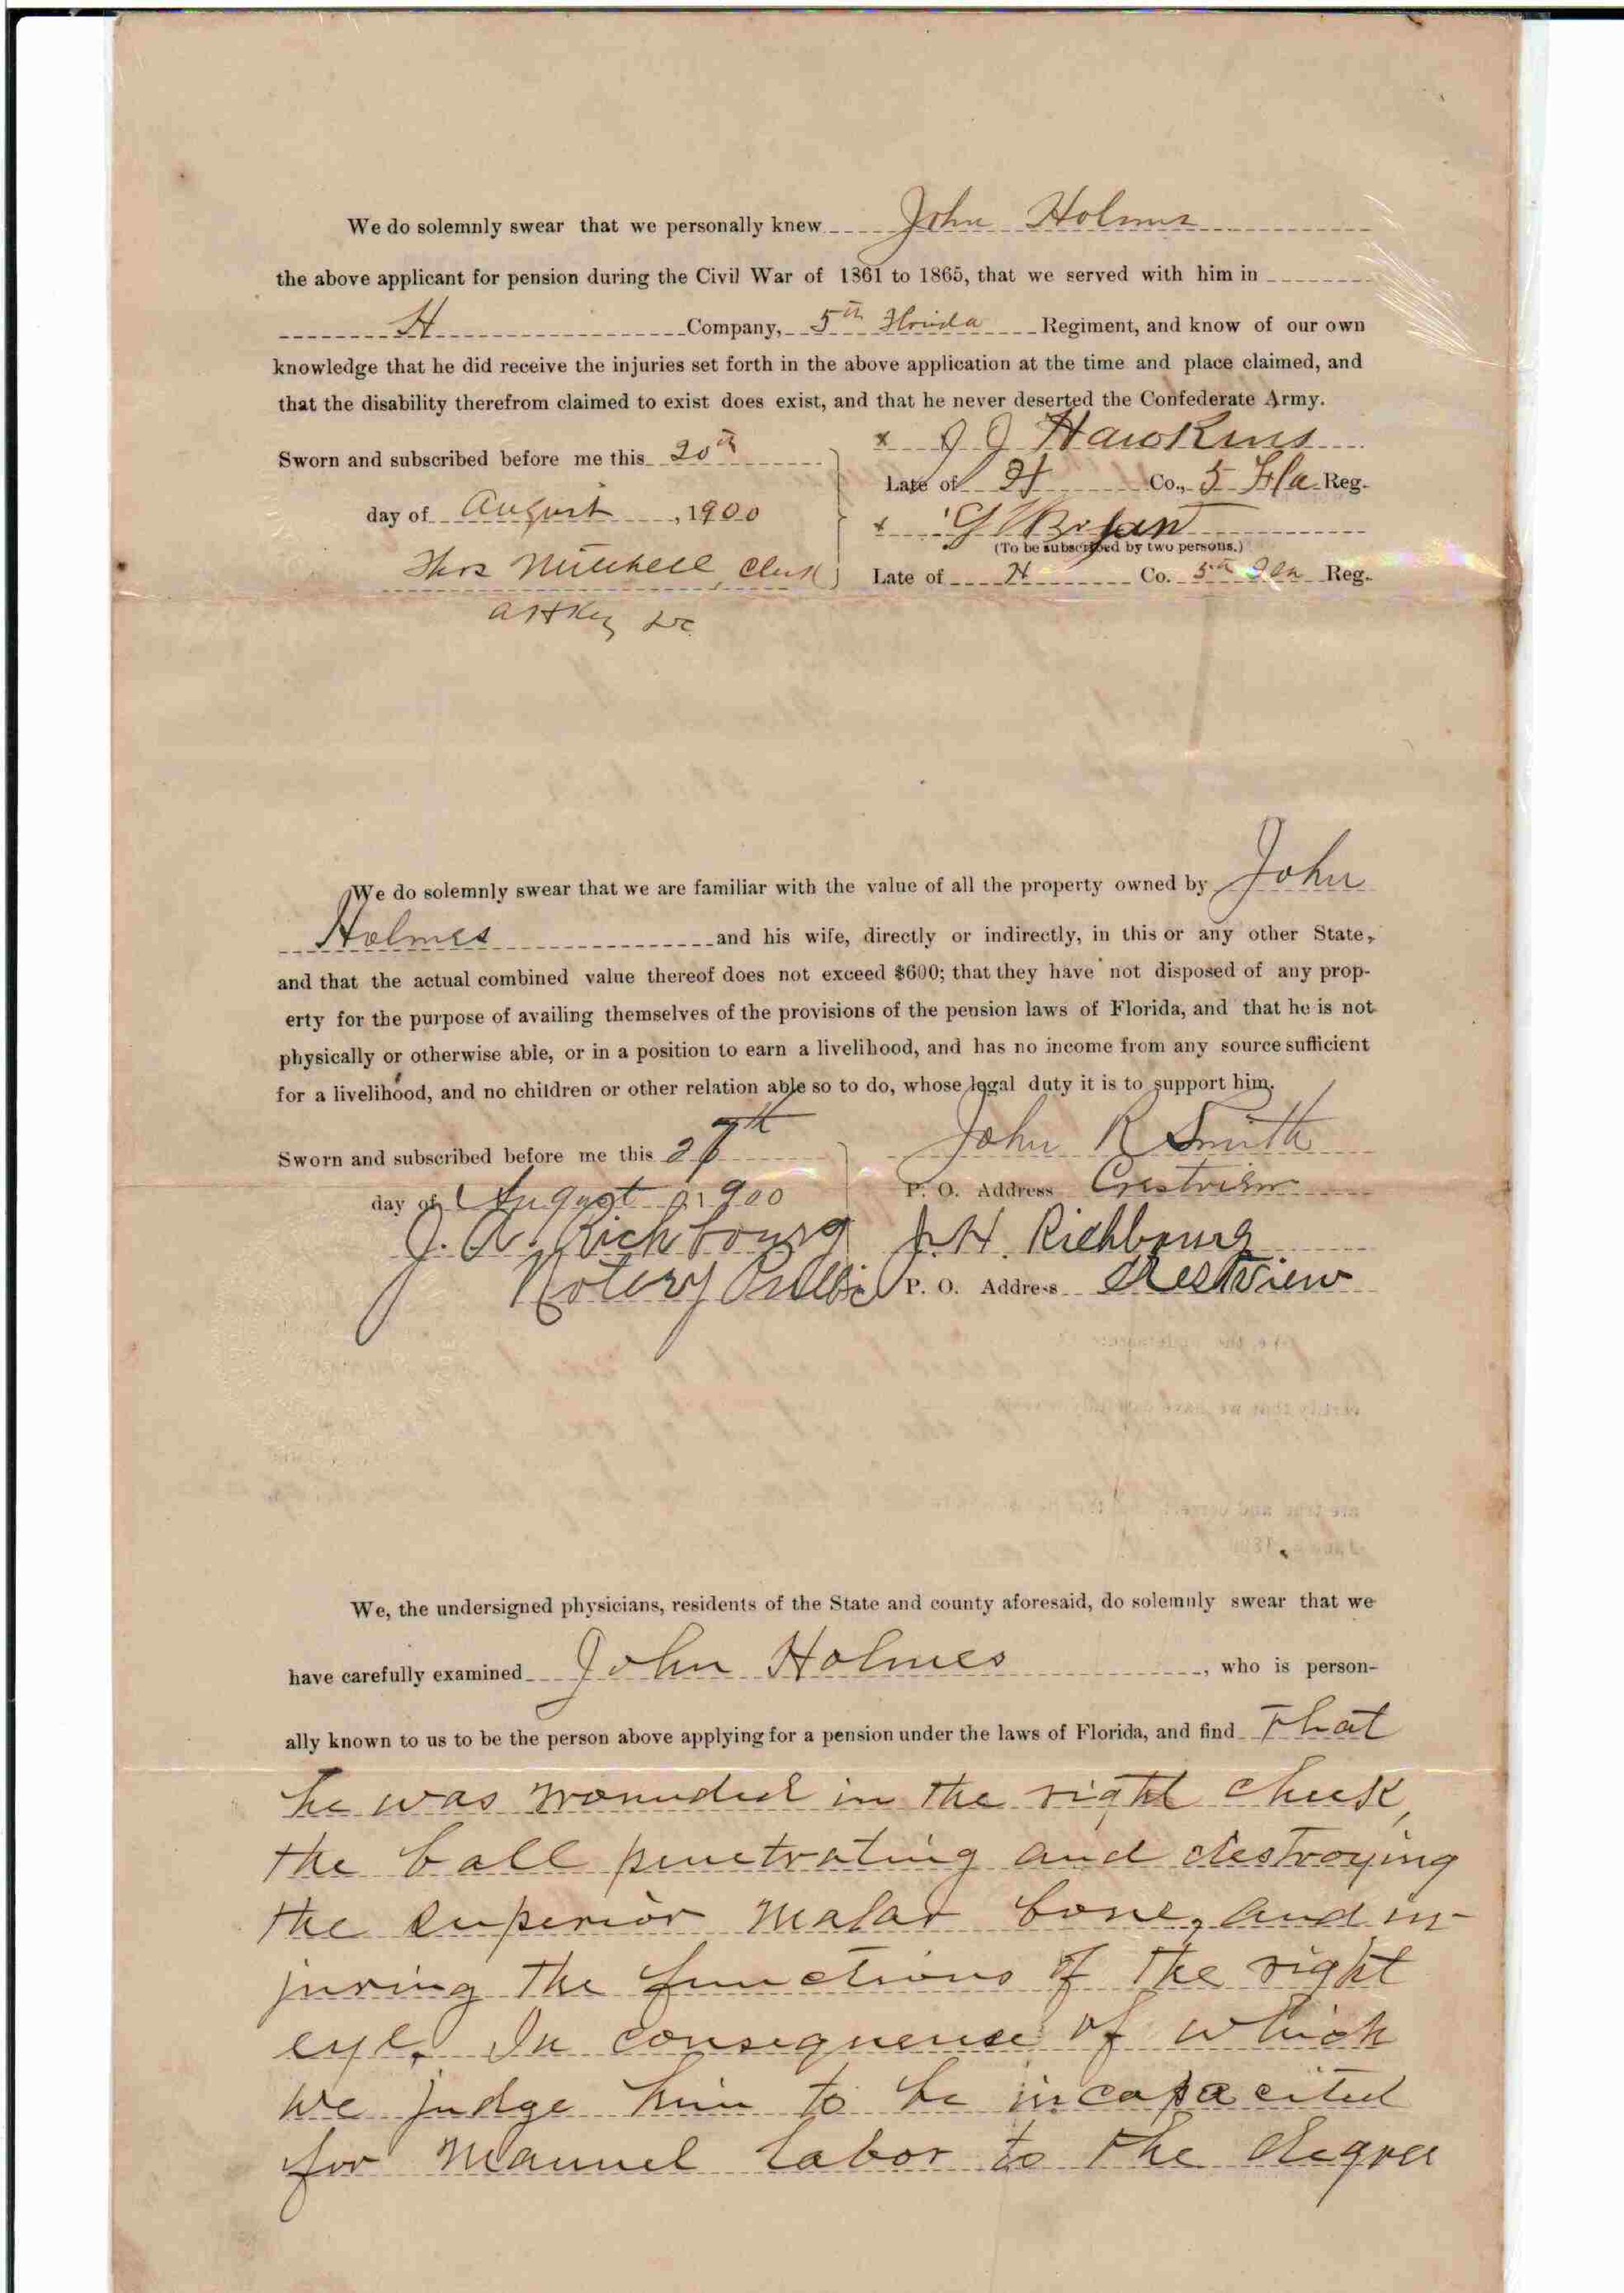 We do solemnly swear that we personally knew John Holmes
the above applicant for pension during the Civil War of 1861 to 1865, that we served with him in
H Company, 5th Florida Regiment, and know of our own
knowledge that he did receive the injuries set forth in the above application at the time and place claimed, and
that the disability therefrom claimed to exist does exist, and that he never deserted the Confederate Army.
Sworn and subscribed before me this 20th
day of August, 1900
Thos Mitchell, Clerk
x J J Hawkins
Late of H Co., 5 Fla Reg.
x Bryan
(To be subscribed by two persons.)
Late of H Co. 5th Fla Reg.
We do solemnly swear that we are familiar with the value of all the property owned by John
Holmes and his wife, directly or indirectly, in this or any other State,
and that the actual combined value thereof does not exceed $600; that they have not disposed of any prop-
erty for the purpose of availing themselves of the provisions of the pension laws of Florida, and that he is not
physically or otherwise able, or in a position to earn a livelihood, and has no income from any source sufficient
for a livelihood, and no children or other relation able so to do, whose legal duty it is to support him.
Sworn and subscribed before me this 27th
day of August 1900
J. A. Richbourg
Notery Public
John R Smith
P. O. Address Crestview
J. H. Richbourg
P. O. Address Crestview
We, the undersigned physicians, residents of the State and county aforesaid, do solemnly swear that we
have carefully examined John Holmes, who is person-
ally known to us to be the person above applying for a pension under the laws of Florida, and find That
he was wounded in the right cheek,
the ball penetrating and destroying
the superior malar bone, and in-
juring the functions of the right
eye. In consequence of which
we judge him to be incapacited
for Mannel labor to the degree